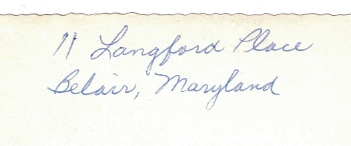 11 Langford Place
Belair, Maryland